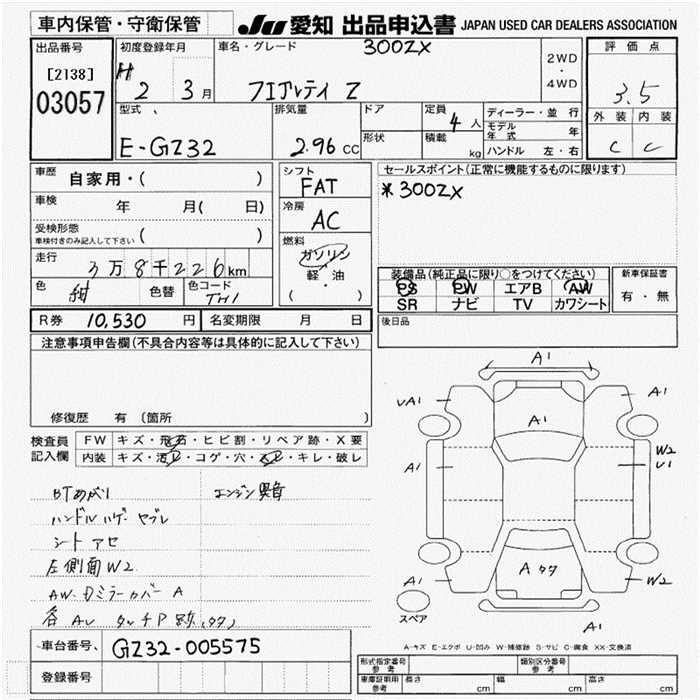 車内保管・守衛保管
JU 愛知 出品申込書 JAPAN USED CAR DEALERS ASSOCIATION
出品番号
[2138]
03057
初度登録年月
H 2 3月
車名・グレード
300ZX
フェアレディ Z
2WD
・
4WD
評価点
3.5
外装 内装
C C
型式
E-GZ32
排気量
2.96 CC
ドア
形状
定員
4人
積載
kg
ディーラー・並行
モデル年式 年
ハンドル 左・右
車歴 自家用・( )
車検 年 月( 日)
受検形態
車検付きのみ記入して下さい ( )
走行 3万8千226km
色 紺 色替 色コード TH1
シフト
FAT
冷房
AC
燃料
ガソリン
軽・油
( )
セールスポイント(正常に機能するものに限ります)
*300ZX
装備品(純正品に限り○をつけてください)
PS PW エアB AW
SR ナビ TV カワシート
新車保証書
有・無
R券 10,530 円 名変期限 月 日
後日品
注意事項申告欄(不具合内容等は具体的に記入して下さい)
修復歴 有(箇所 )
検査員記入欄
FW キズ・飛石・ヒビ割・リペア跡・X要
内装 キズ・汚レ・コゲ・穴・スレ・キレ・破レ
BTあがり
エンジン異音
ハンドルハゲ・ヤブレ
シートアセ
左側面W2
AW・Dミラーカバー A
各AU タッチP跡(タタ)
A1
UA1
A1
A1
A1
W2
U1
A1
A タタ
W2
A1
スペア
A-キズ E-エクボ U-凹み W-補修跡 S-サビ C-腐食 XX-交換済
車台番号、
GZ32-005575
登録番号
形式指定番号
参考
類別区分番号
参考
車庫証明用
参考
長さ cm 幅 cm 高さ cm